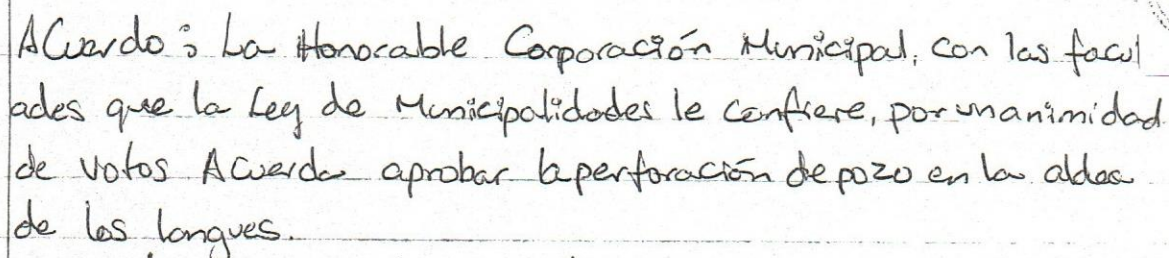 Acuerdo: La Honorable Corporación Municipal, con las facul
ades que la Ley de Municipalidades le confiere, por unanimidad
de votos Acuerda aprobar la perforación de pozo en la aldea
de los longues.